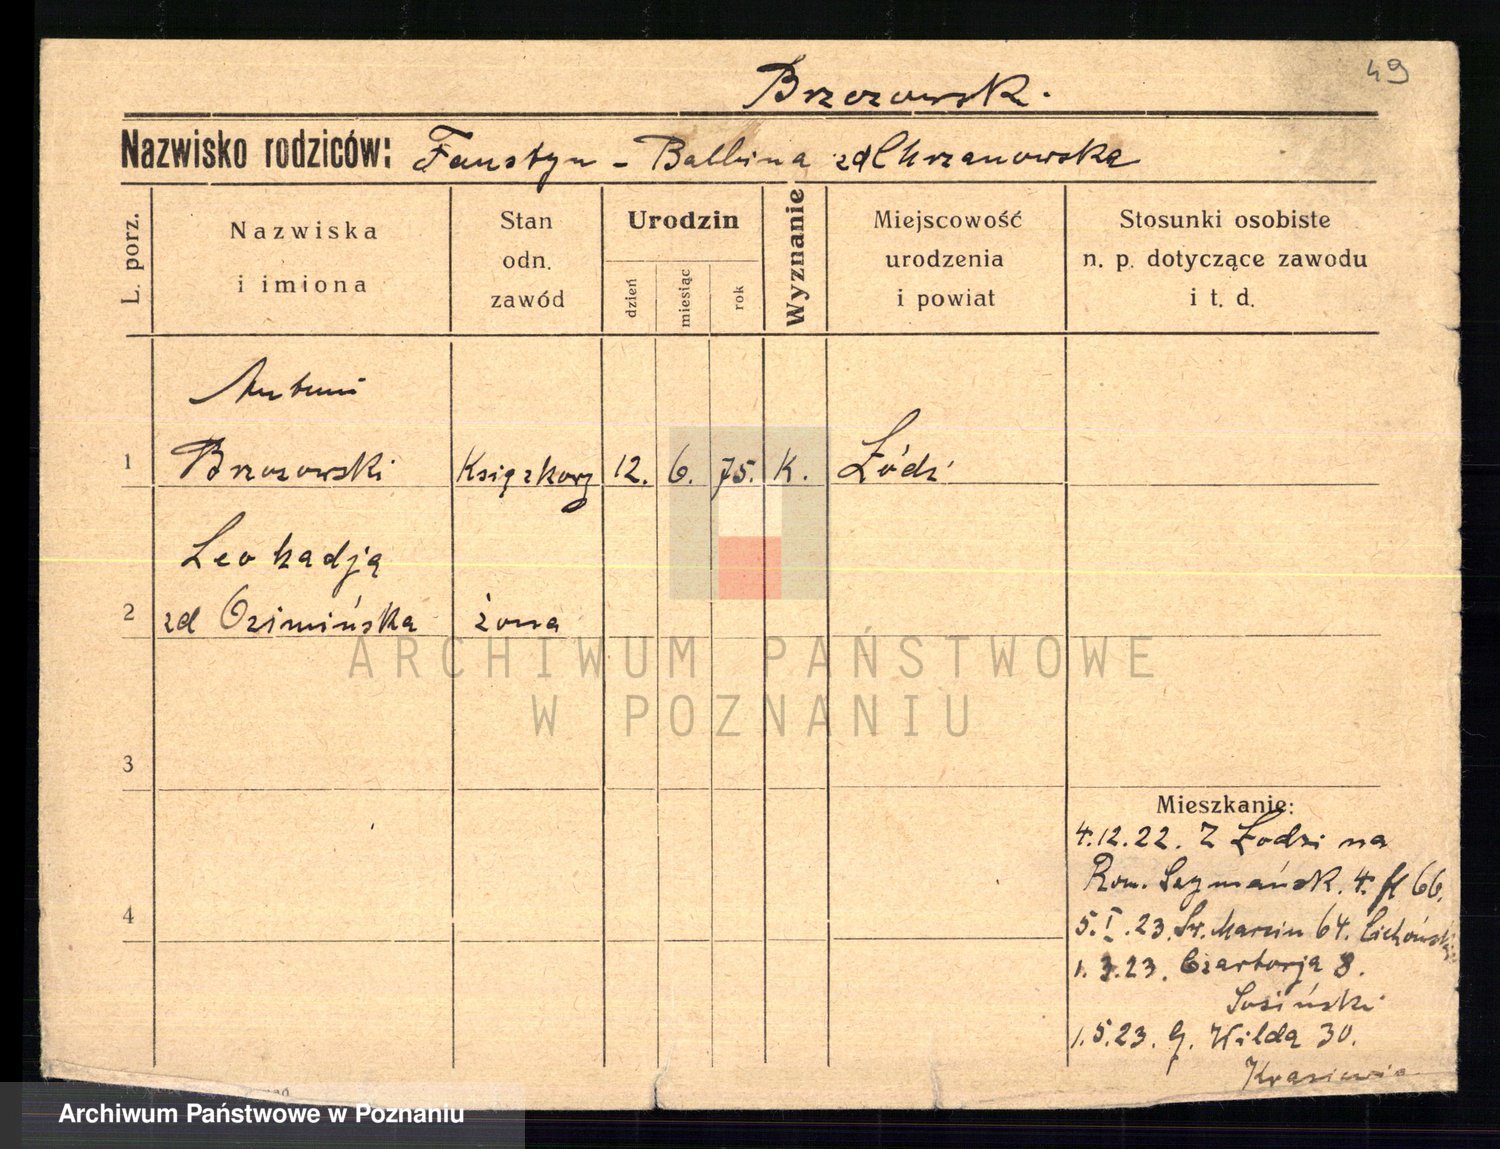 49
Brzozowsk.
Nazwisko rodziców: Faustyn - Balbina zd Chrzanowska
L. porz.
Nazwiska
i imiona
Stan
odn.
zawód
Urodzin
dzień
miesiąc
rok
Wyznanie
Miejscowość
urodzenia
i powiat
Stosunki osobiste
n. p. dotyczące zawodu
i t. d.
Antoni
1 Brzozowski Książkowy 12. 6. 75. K. Łódź
Leokadją
2 zd Ozimińska żona
ARCHIWUM PAŃSTWOWE
W POZNANIU
3
Mieszkanie:
4.12.22. Z Łodzi na
Rom. Szymańsk. 4. 66.
4
5.I.23. Św. Marcin 64. Cichońsk
1.3.23. Czartorja 8.
Sosiński
1.5.23. G. Wilda 30.
Archiwum Państwowe w Poznaniu